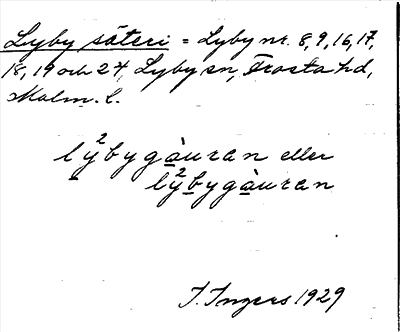 Lyby säteri = Lyby nr. 8, 9, 16, 17,
18, 19 och 24, Lyby sn, Frosta hd,
Malm. l.
ly²bygàuran eller
ly²bygàuran
I. Ingers 1929